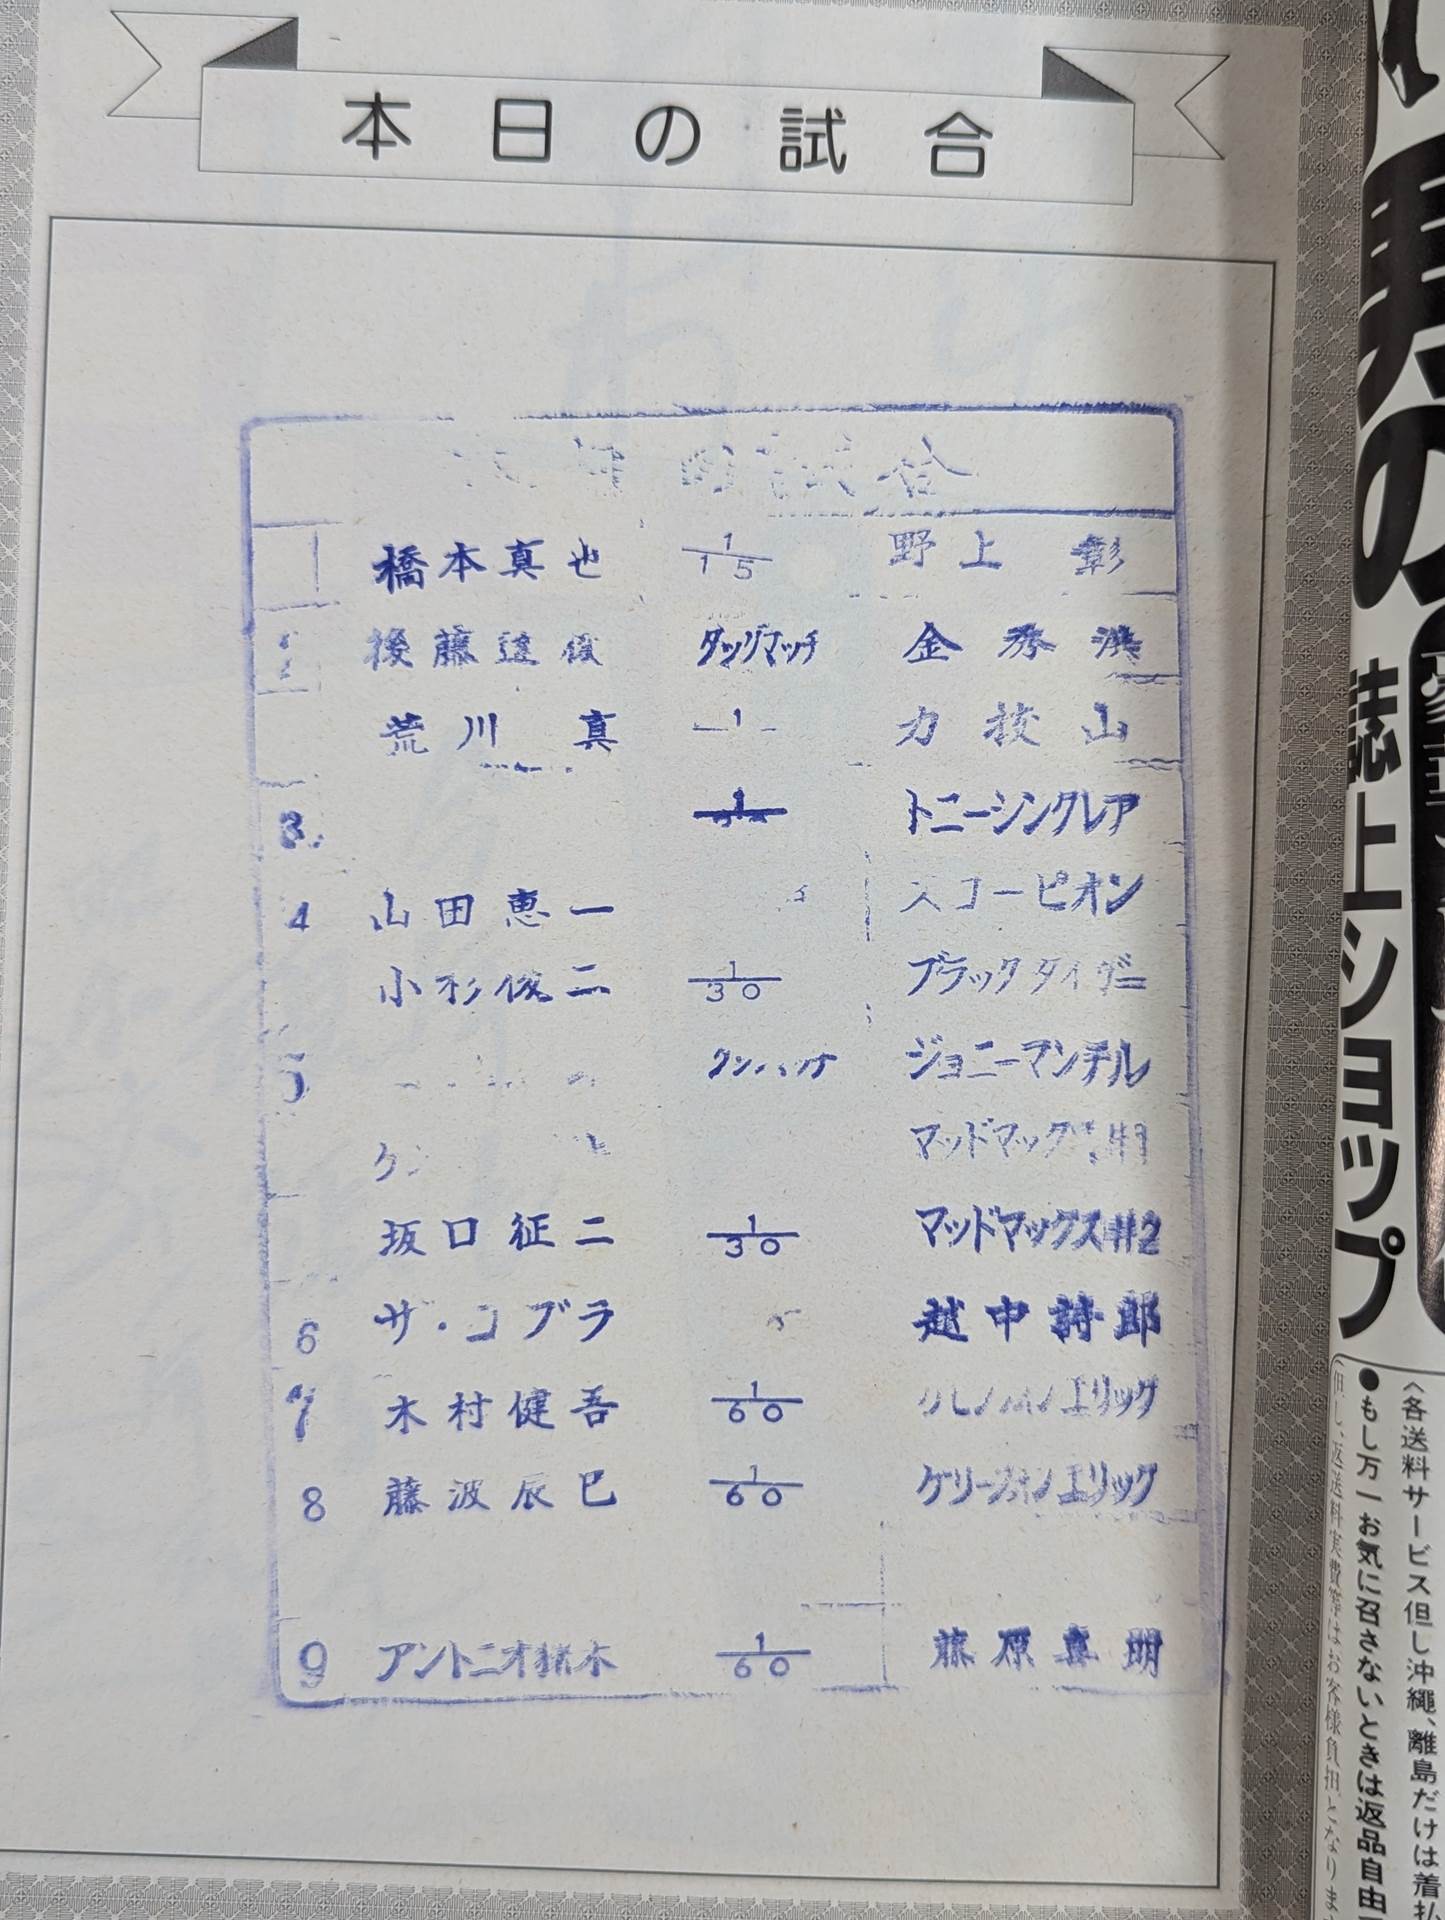 本日の試合
試合
橋本真也 1/15 野上 彰
2 後藤達俊 タッグマッチ 金秀洪
荒川 真 1 力抜山
3 1 トニーシンクレア
4 山田恵一 スコーピオン
小杉俊二 1/30 ブラックタイガー
5 ジョニーマンテル
マッドマックス #1
坂口征二 1/30 マッドマックス#2
6 ザ・コブラ 越中詩郎
7 木村健吾 1/60 エリック
8 藤波辰巳 1/60 ケリーフォンエリック
9 アントニオ猪木 1/60 藤原喜明
男の
誌上ショップ
〈各送料サービス但し沖縄、離島だけは着払
●もし万一お気に召さないときは返品自由
但し、返送料実費等はお客様負担となりま